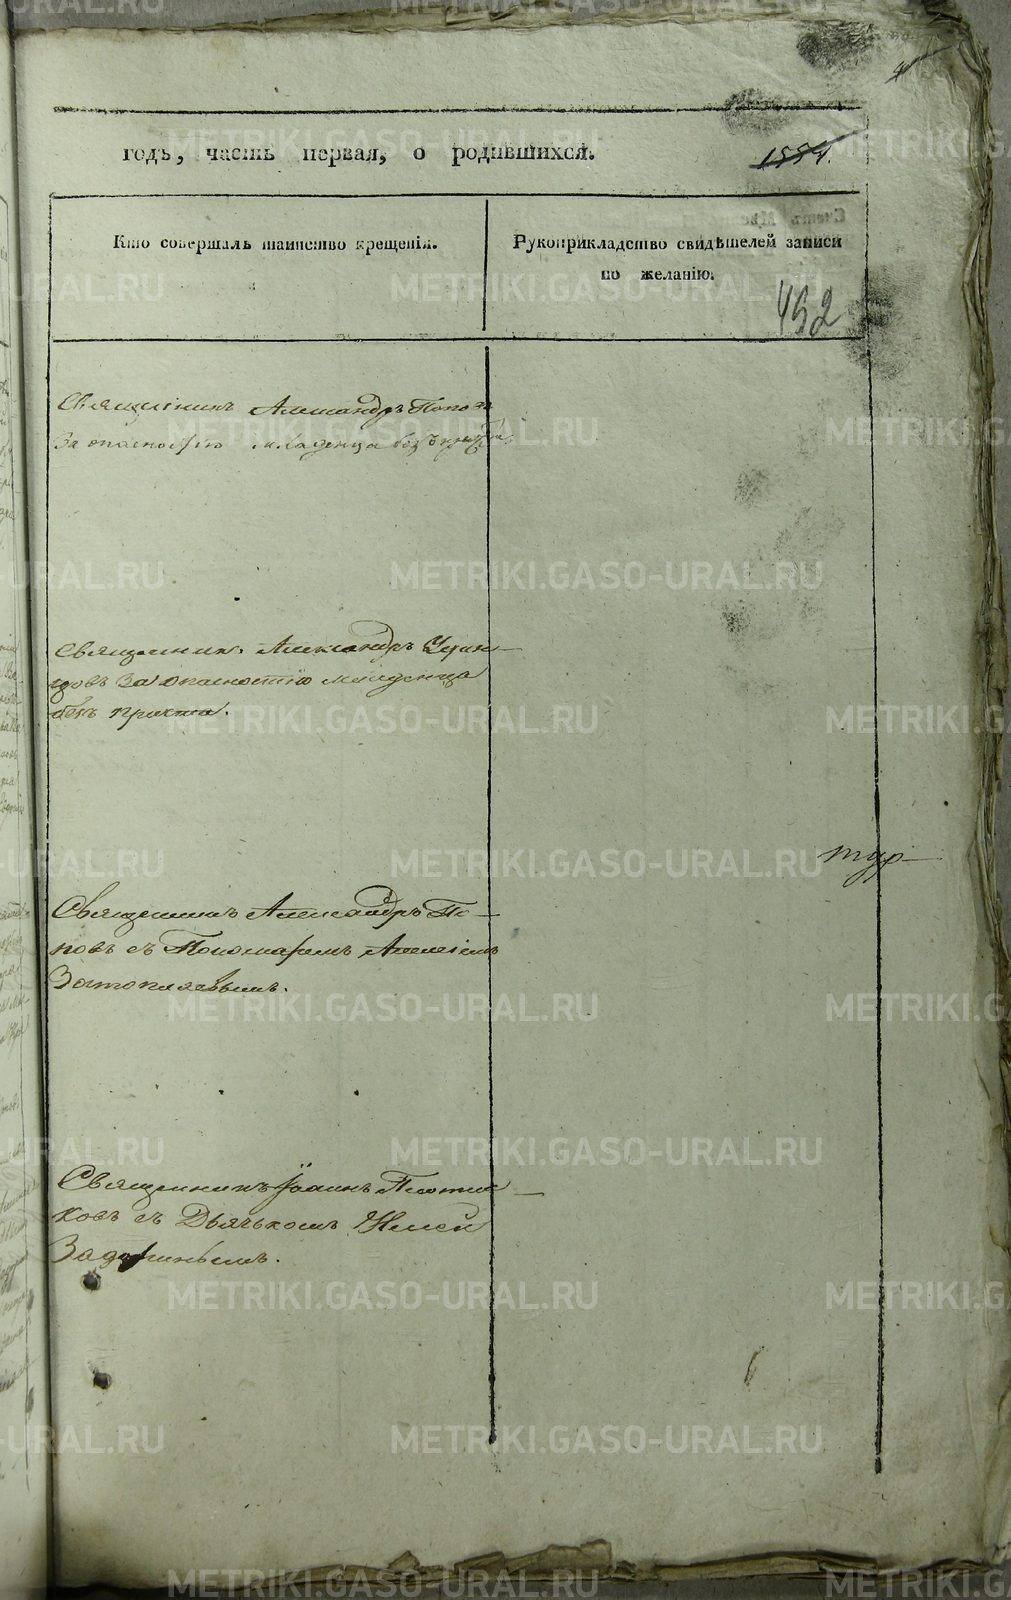 годъ, часть первая, о родившихся.
1554.
Кто совершалъ таинство крещенія.
Рукоприкладство свидѣтелей записи
по желанію.
452
Священникъ Александръ Поповъ
За опасностію младенца безъ причта.
Священникъ Александръ Удин-
цовъ За опасностію младенца
безъ причта.
Священникъ Александръ По-
повъ съ Пономаремъ Алексіемъ
Затопляевымъ.
Священникъ Іоаннъ Плотни-
ковъ съ Дьячькомъ
Задоринымъ.
METRIKI.GASO-URAL.RU